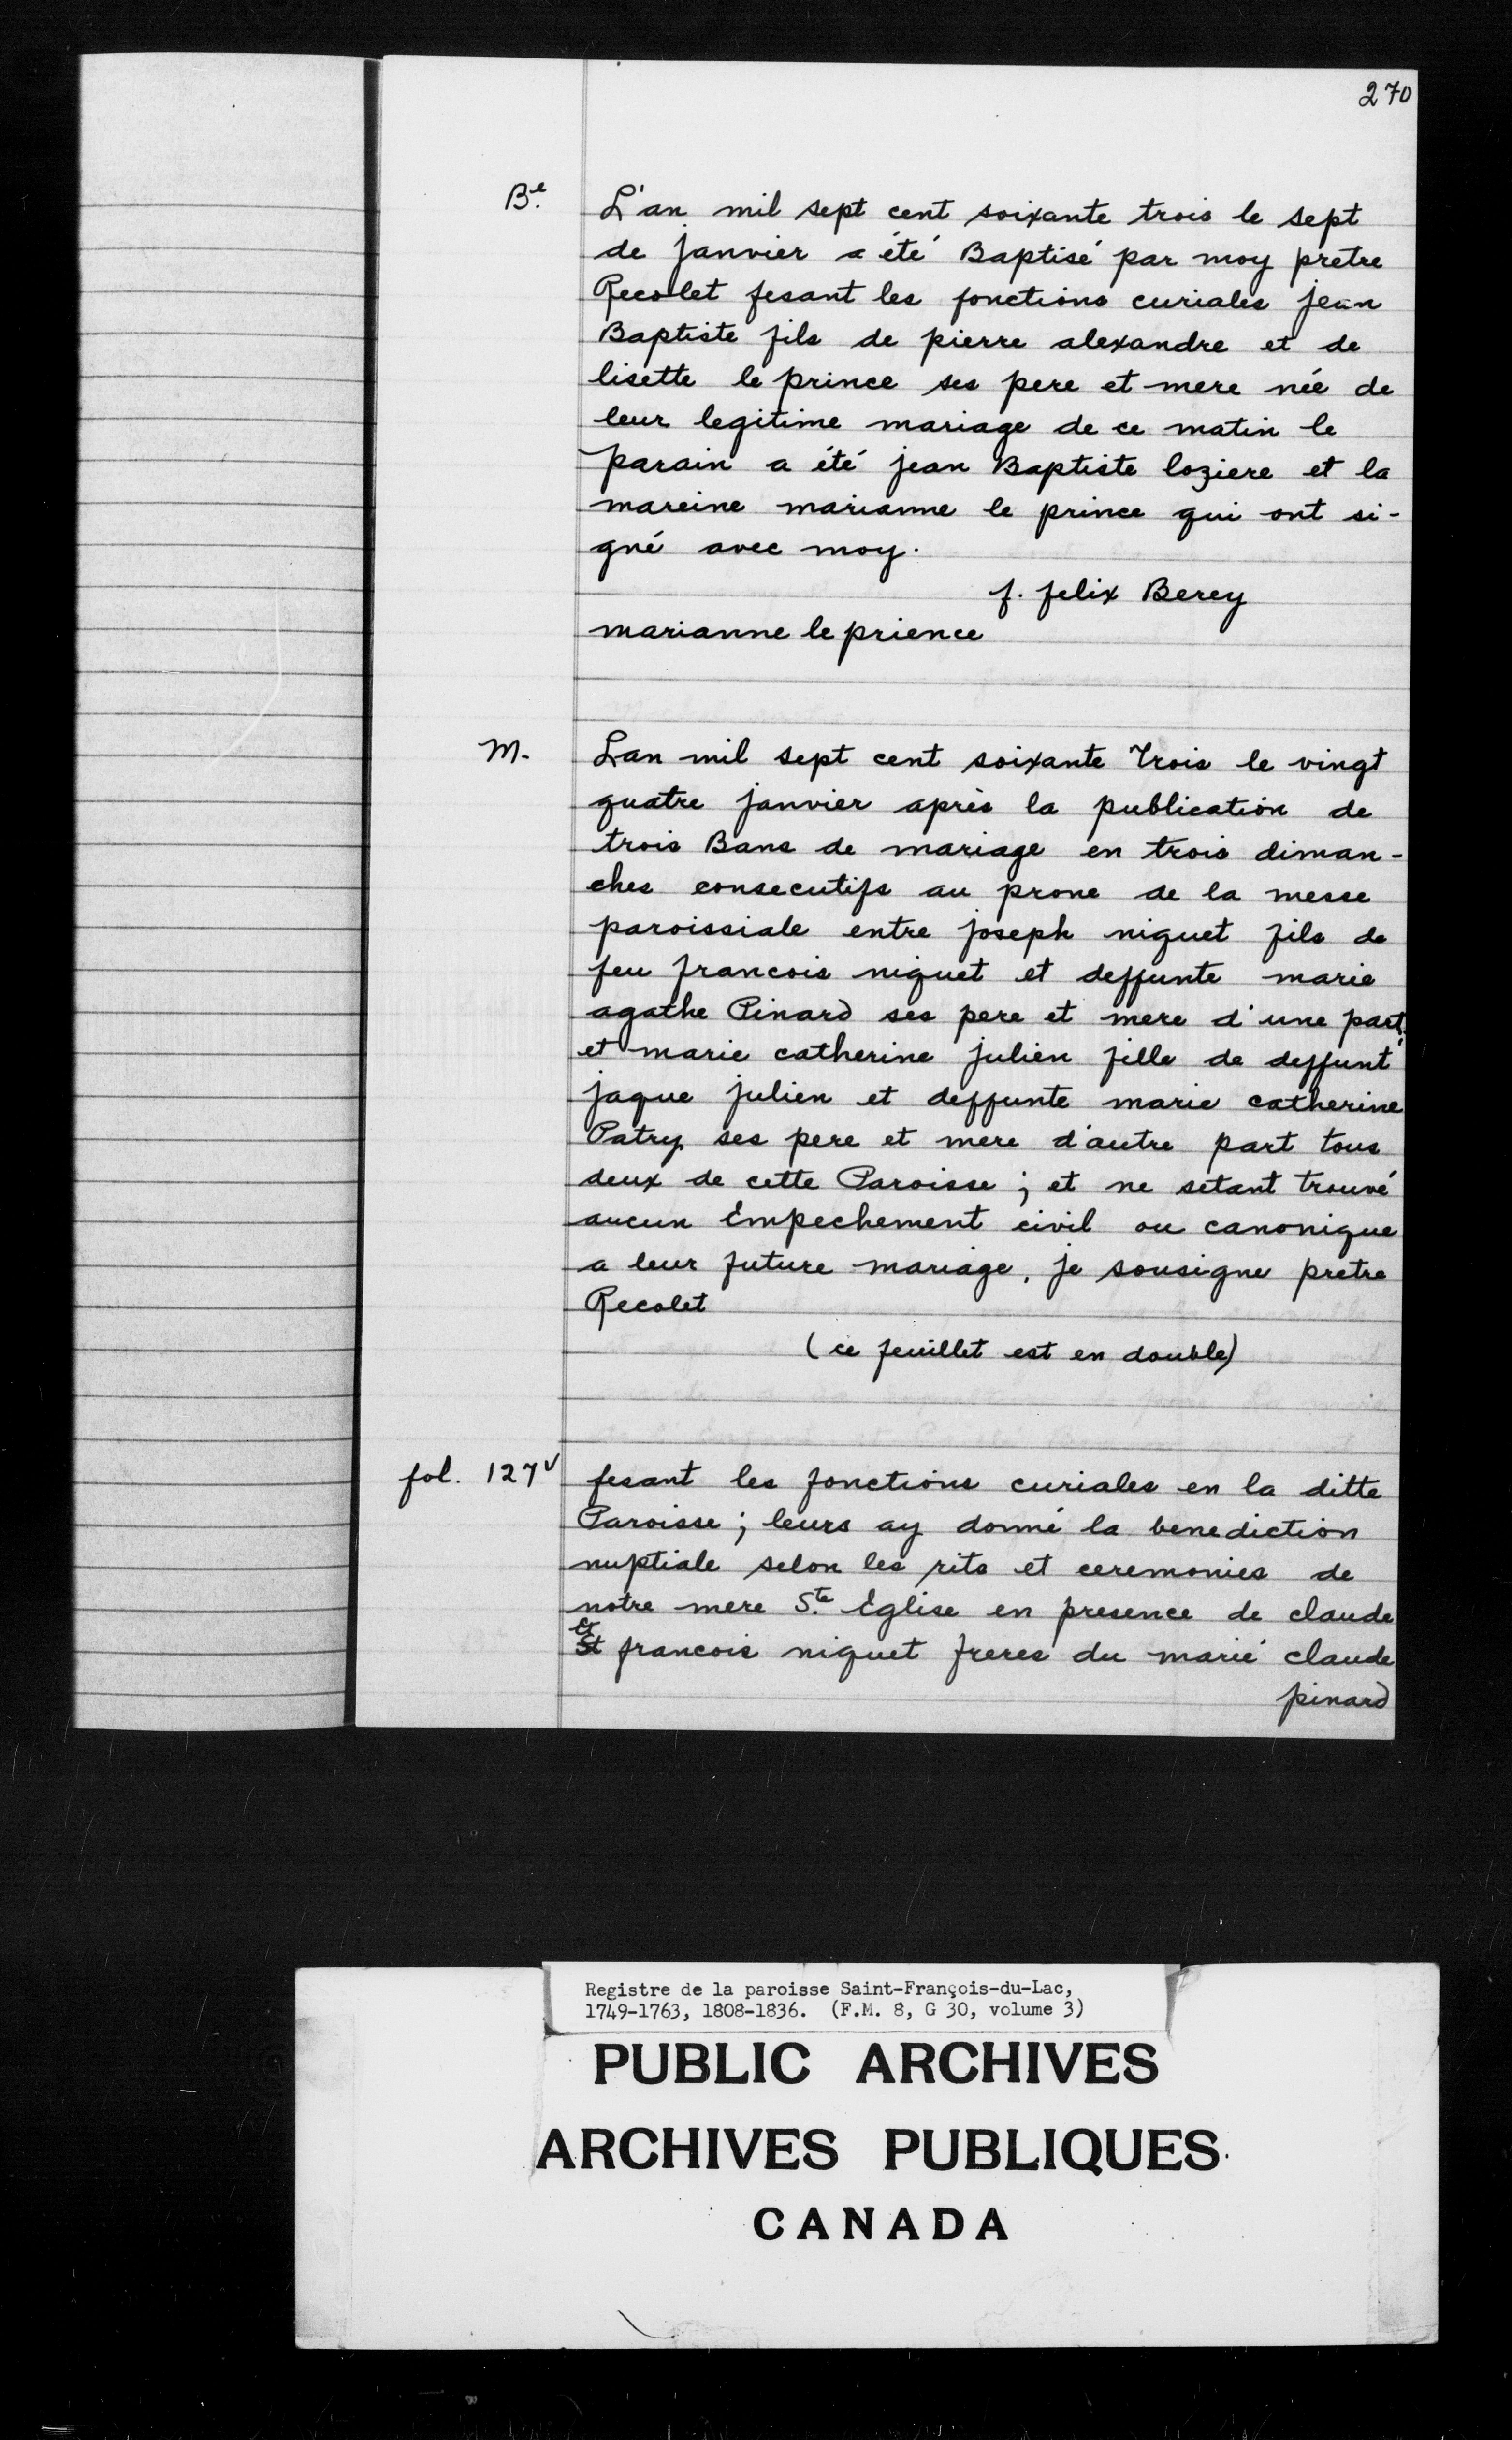 270
B.e L'an mil sept cent soixante trois le sept
de janvier a été Baptisé par moy pretre
Recolet fesant les fonctions curiales jean
Baptiste fils de pierre alexandre et de
lisette le prince ses pere et mere née de
leur legitime mariage de ce matin le
parain a été jean Baptiste loziere et la
mareine marianne le prince qui ont si-
gné avec moy.
f. felix Berey
marianne le prience
M. Lan mil sept cent soixante Trois le vingt
quatre janvier après la publication de
trois Bans de mariage en trois diman-
ches consecutifs au prone de la messe
paroissiale entre joseph niquet fils de
feu francois niquet et deffunte marie
agathe Pinard ses pere et mere d'une part;
et marie catherine julien fille de deffunt
jaque julien et deffunte marie catherine
Patry ses pere et mere d'autre part tous
deux de cette Paroisse ; et ne setant trouvé
aucun Empechement civil ou canonique
a leur future mariage, je sousigne pretre
Recolet
(ce feuillet est en double)
fol. 127v fesant les fonctions curiales en la ditte
Paroisse ; leurs ay donné la benediction
nuptiale selon les rits et ceremonies de
notre mere S.te Eglise en presence de claude
et francois niquet freres du marié claude
pinard
Registre de la paroisse Saint-François-du-Lac,
1749-1763, 1808-1836. (F.M. 8, G 30, volume 3)
PUBLIC ARCHIVES
ARCHIVES PUBLIQUES
CANADA